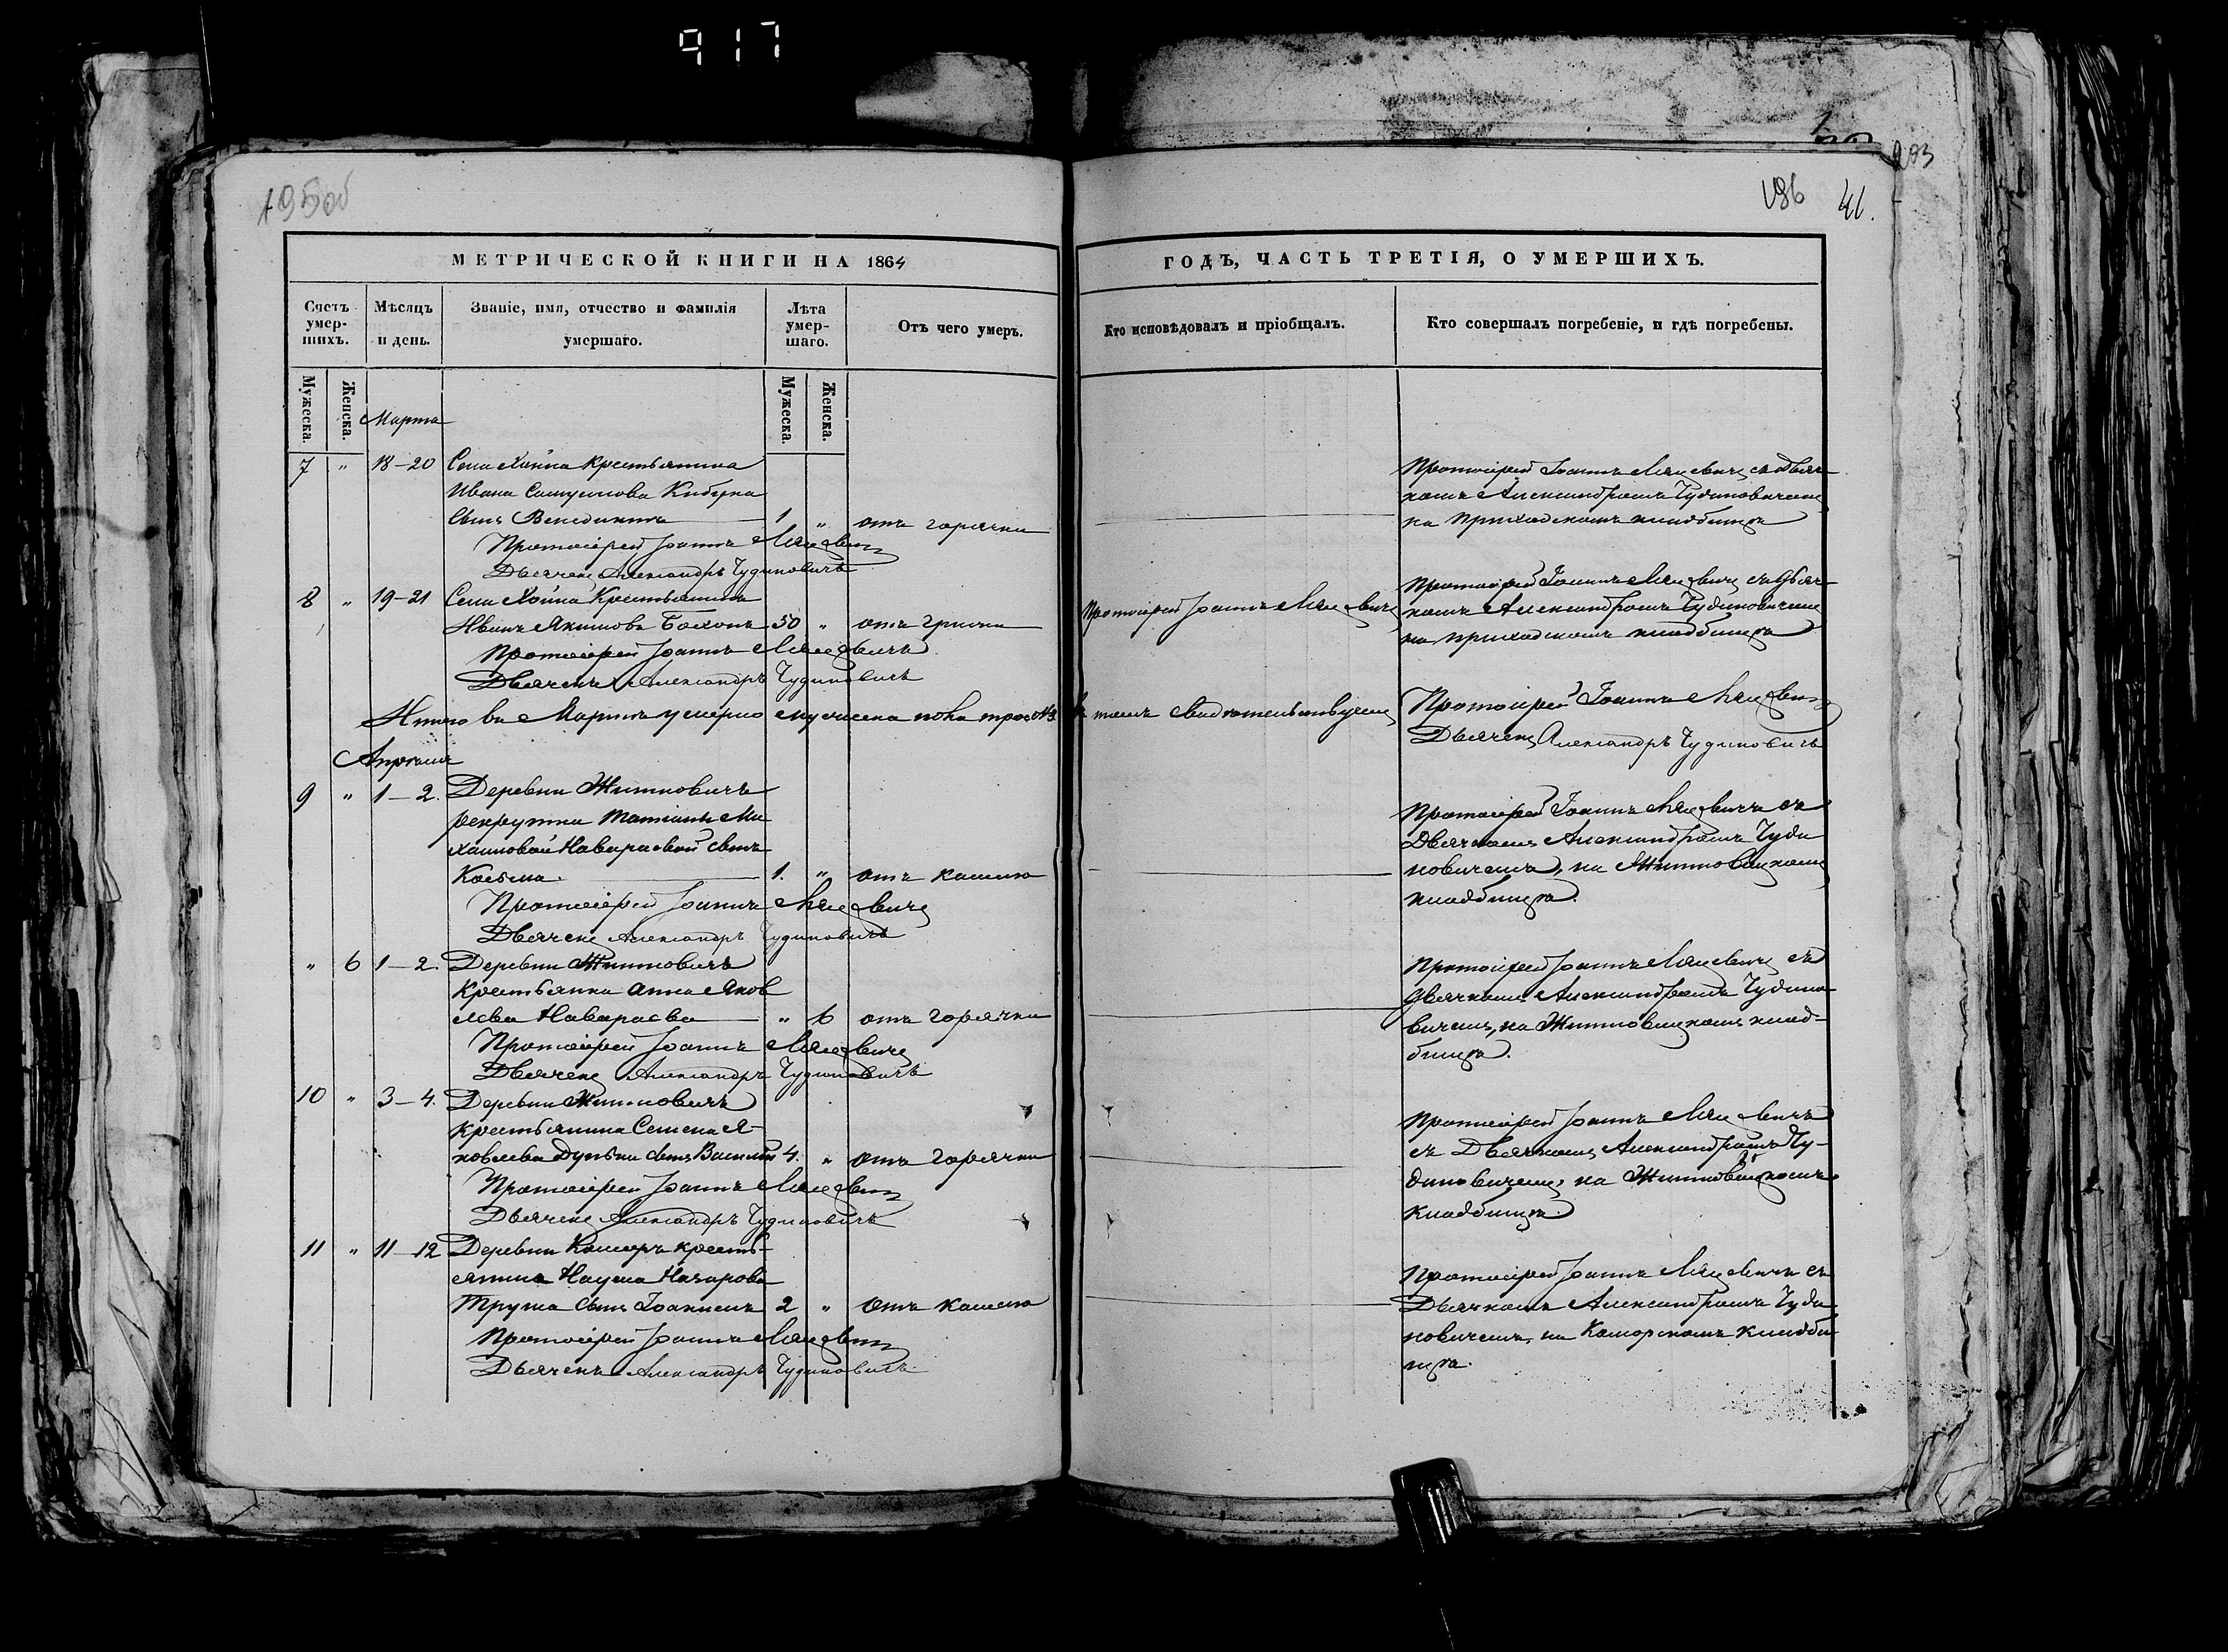 917
195об
196 41.
203
МЕТРИЧЕСКОЙ КНИГИ НА 1864
ГОДЪ, ЧАСТЬ ТРЕТІЯ, О УМЕРШИХЪ.
Счетъ умер-шихъ.
Мѣсяцъ и день.
Званіе, имя, отчество и фамилія умершаго.
Лѣта умер-шаго.
Отъ чего умеръ.
Кто исповѣдовалъ и пріобщалъ.
Кто совершалъ погребеніе, и гдѣ погребены.
Мужеска.
Женска.
Мужеска.
Женска.
Марта
7 " 18–20 Села Хойна крестьянина
Ивана
сынъ Венедиктъ 1 " отъ горячки
Протоіерей Іоаннъ
Дьячекъ Александръ Чудиновичъ
Протоіерей Іоаннъ съ дьяч-
комъ Александромъ Чудиновичемъ
на приходскомъ кладбищѣ
8 " 19–21 Села Хойна крестьянинъ
Иванъ Якимовъ 50 " отъ
Протоіерей Іоаннъ
Дьячекъ Александръ Чудиновичъ
Протоіерей Іоаннъ
Протоіерей Іоаннъ съ дьяч-
комъ Александромъ Чудиновичемъ
на приходскомъ кладбищѣ
Итого въ Мартѣ умерло мужеска пола трое
въ томъ свидѣтельствуемъ
Протоіерей Іоаннъ
Дьячекъ Александръ Чудиновичъ
Апрѣля
9 " 1–2. Деревни Житновичъ
рекрутки Татіаны Ми
хайловой сынъ
Косьма 1. " отъ кашлю
Протоіерей Іоаннъ
Дьячекъ Александръ Чудиновичъ
Протоіерей Іоаннъ съ
Дьячкомъ Александромъ Чуди
новичемъ, на Житновицкомъ
кладбищѣ.
" 6 1–2. Деревни Житновичъ
крестьянка Анна Яков
лева " 6 отъ горячки
Протоіерей Іоаннъ
Дьячекъ Александръ Чудиновичъ
Протоіерей Іоаннъ съ
дьячкомъ Александромъ Чудино-
вичемъ, на Житновицкомъ клад-
бищѣ.
10 " 3–4. Деревни Житновичъ
крестьянина Семена Я-
ковлева сынъ Василій 4. " отъ горячки
Протоіерей Іоаннъ
Дьячекъ Александръ Чудиновичъ
Протоіерей Іоаннъ
съ Дьячкомъ Александромъ Чу-
диновичемъ, на Житновицкомъ
кладбищѣ.
11 " 11–12 Деревни Коморъ кресть-
янина Наума Назарова
сынъ 2 " отъ кашлю
Протоіерей Іоаннъ
Дьячекъ Александръ Чудиновичъ.
Протоіерей Іоаннъ съ
Дьячкомъ Александромъ Чуди
новичемъ, на Коморскомъ кладби
щѣ.